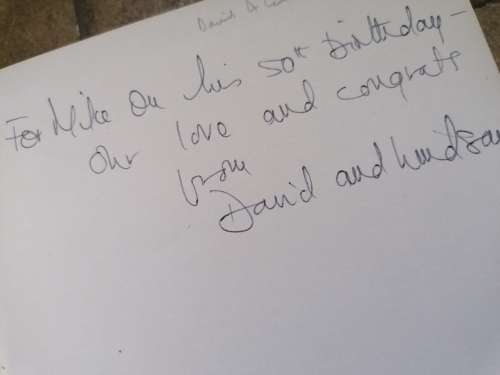 David
For Mike On his 50th Birthday -
Our love and congrats
from
David and Lindsay